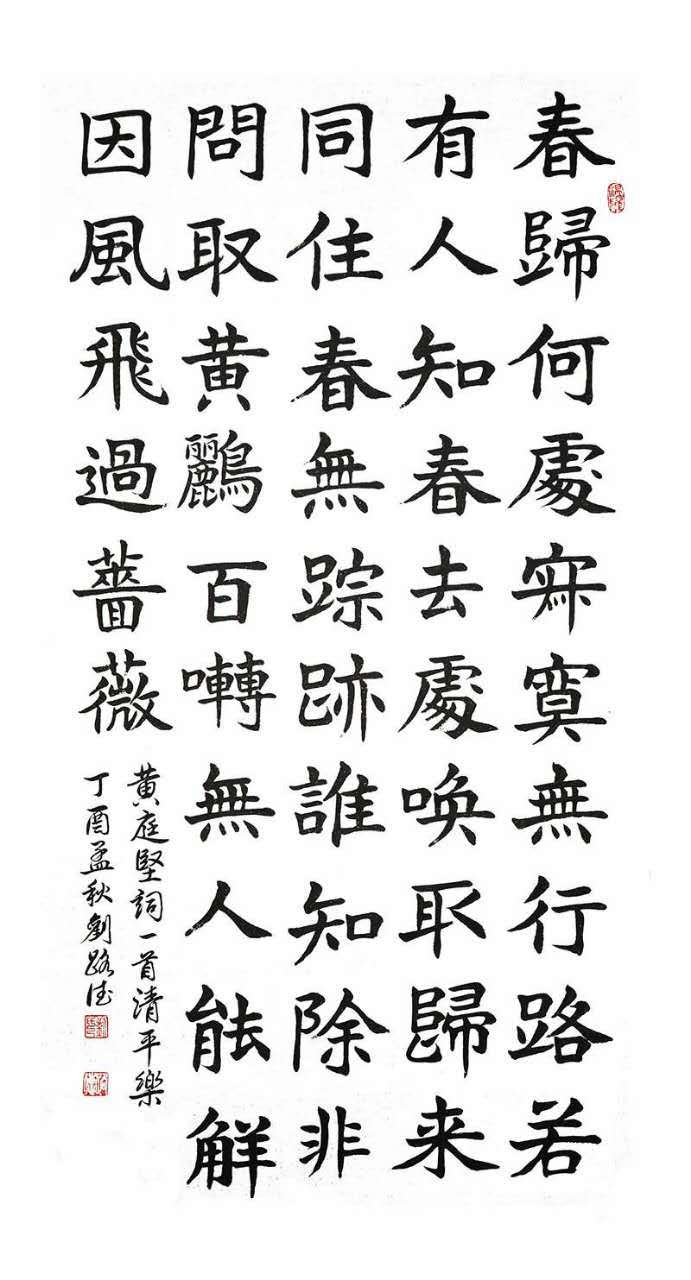 春歸何處寂寞無行路若
有人知春去處唤取歸来
同住春無踪跡誰知除非
問取黄鸝百囀無人能解
因風飛過薔薇
黄庭堅詞一首清平樂
丁酉孟秋劉路德